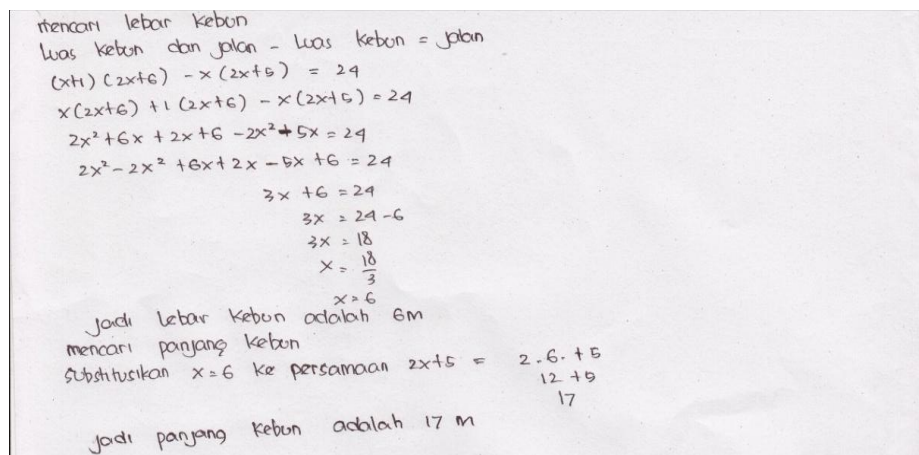 mencari lebar kebun
Luas kebun dan jalan - Luas kebun = jalan
(x+1) (2x+6) - x (2x+5) = 24
x(2x+6) + 1 (2x+6) - x(2x+5) = 24
2x² + 6x + 2x + 6 - 2x² + 5x = 24
2x² - 2x² + 6x + 2x - 5x + 6 = 24
3x + 6 = 24
3x = 24 - 6
3x = 18
x = 18/3
x = 6
jadi lebar kebun adalah 6m
mencari panjang kebun
Substitusikan x = 6 ke persamaan 2x+5 = 2.6. + 5
12 + 5
17
jadi panjang kebun adalah 17 m